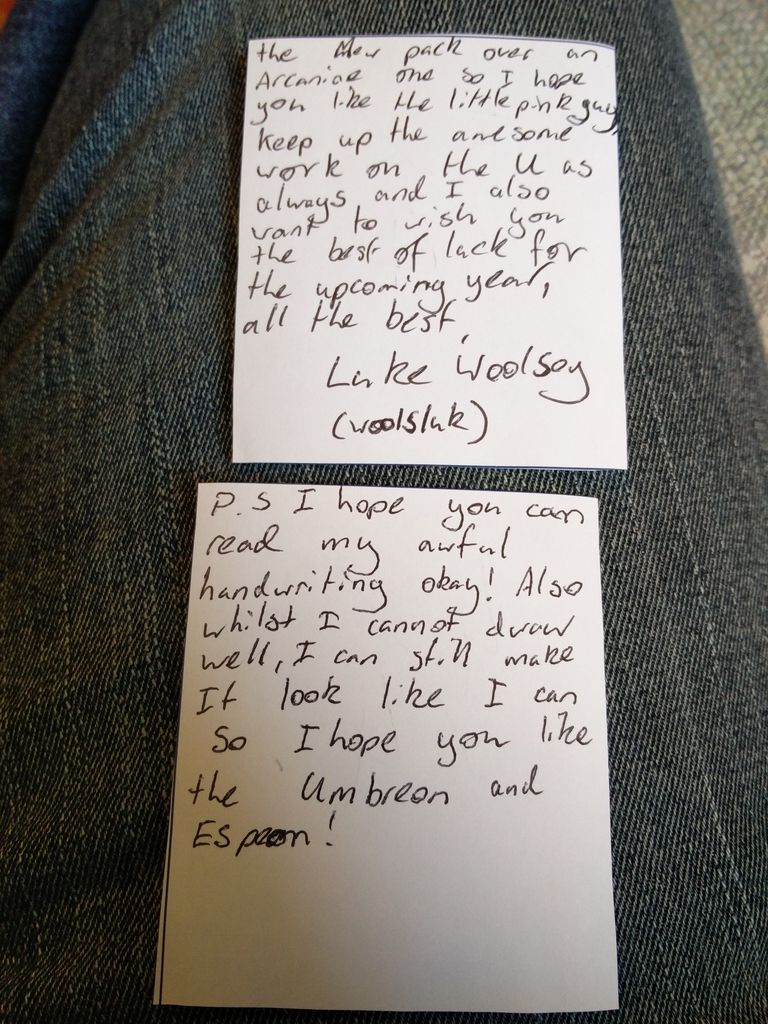 the Mew pack over an
Arcanine one so I hope
you like the little pink guy,
keep up the awesome
work on the U as
always and I also
want to wish you
the best of luck for
the upcoming year,
all the best,
Luke Woolsey
(woolsluk)
P.S I hope you can
read my awful
handwriting okay! Also
whilst I cannot draw
well, I can still make
It look like I can
So I hope you like
the Umbreon and
Espeon!